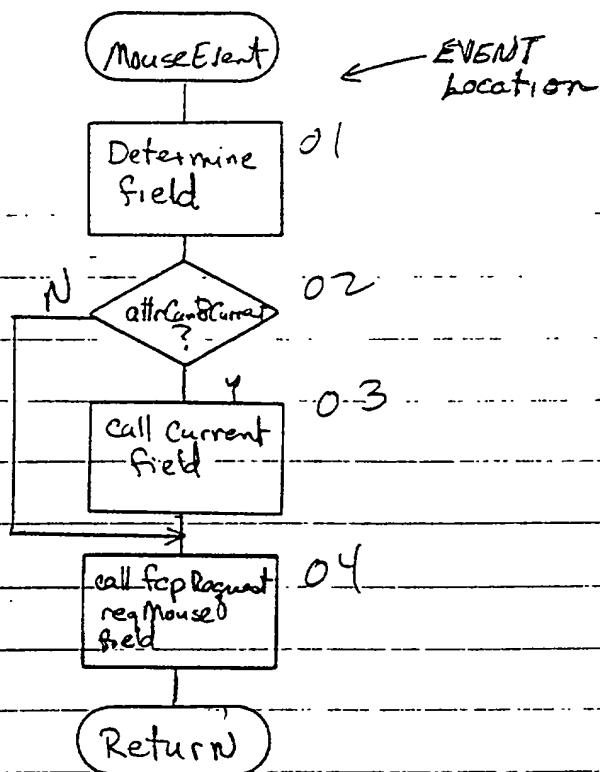 MouseEvent
EVENT
Location
Determine
field
01
N
attrCanBCurrent
?
02
Y
call Current
field
03
call fcpRequest
reqMouse
field
04
Return